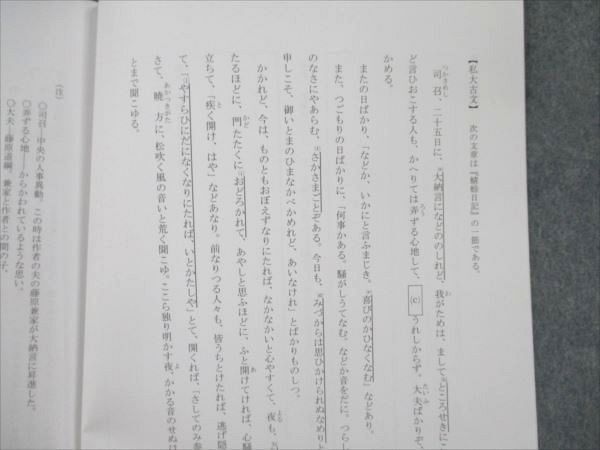 【私大古文】　次の文章は『蜻蛉日記』の一節である。
司召、二十五日に、大納言になどののしれど、我がためは、ましてところせきにこ
ど言ひおこする人も、かへりては弄ずる心地して、(C)うれしからず。大夫ばかりぞ、
かめる。
またの日ばかり、「などか、いかにと言ふまじき。喜びのかひなくなむ」などあり。
また、つごもりの日ばかりに、「何事かある。騒がしうてなむ。などか音をだに。つらし
のなさにやあらむ、さかさまごとぞある。今日も、みづからは思ひかけられぬなめりと
申しこそ、御いとまのひまなかべかめれど、あいなけれ」とばかりものしつ。
かかれど、今は、ものともおぼえずなりにたれば、なかなかいと心やすくて、夜も、
たるほどに、門たたくにおどろかれて、あやしと思ふほどに、ふと開けてければ、心騒
立ちて、「疾く開け、はや」などあなり。前なりつる人々も、皆うちとけたれば、逃げ隠
て、「やすらひにだになくなりにたれば、いとかたしや」とて、開くれば、「さしてのみ参
さて、暁方に、松吹く風の音いと荒く聞こゆ。ここら独り明かす夜、かかる音のせぬは
とまで聞こゆる。
（注）
○司召―中央の人事異動。この時は作者の夫の藤原兼家が大納言に昇進した。
○弄ずる心地―からかわれているような思い。
○大夫―藤原道綱。兼家と作者との間の子。